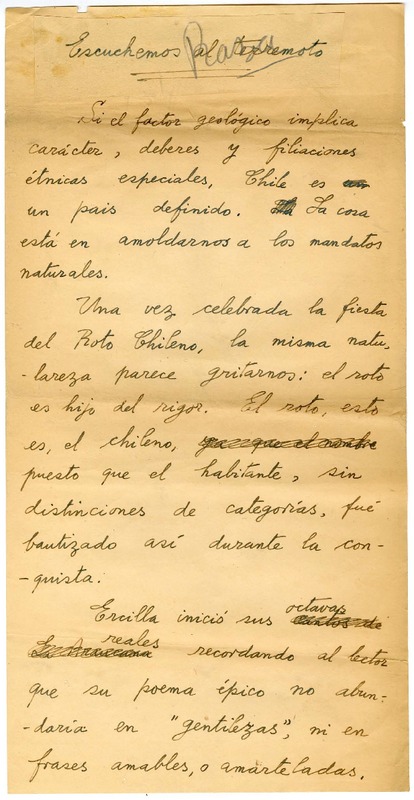 Escuchemos al terremoto
Si el factor geológico implica
carácter, deberes y filiaciones
étnicas especiales, Chile es
un pais definido. La cosa
está en amoldarnos a los mandatos
naturales.
Una vez celebrada la fiesta
del Roto Chileno, la misma natu-
-laleza parece gritarnos: el roto
es hijo del rigor. El roto, esto
es, el chileno, ya que el nombre
puesto que el habitante, sin
distinciones de categorías, fué
bautizado así durante la con-
-quista.
Ercilla inició sus octavas cantos de
La Araucana reales recordando al lector
que su poema épico no abun-
-daría en "gentilezas", ni en
frases amables, o amarteladas.